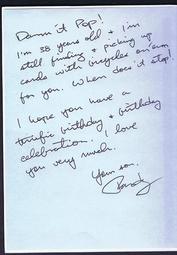 Damn it Pop!
I'm 38 years old & I'm
still finding & picking up
cards with bicycles on 'em
for you. When does it stop!
I hope you have a
terrific birthday & birthday
celebration. I love
you very much.
Your son,